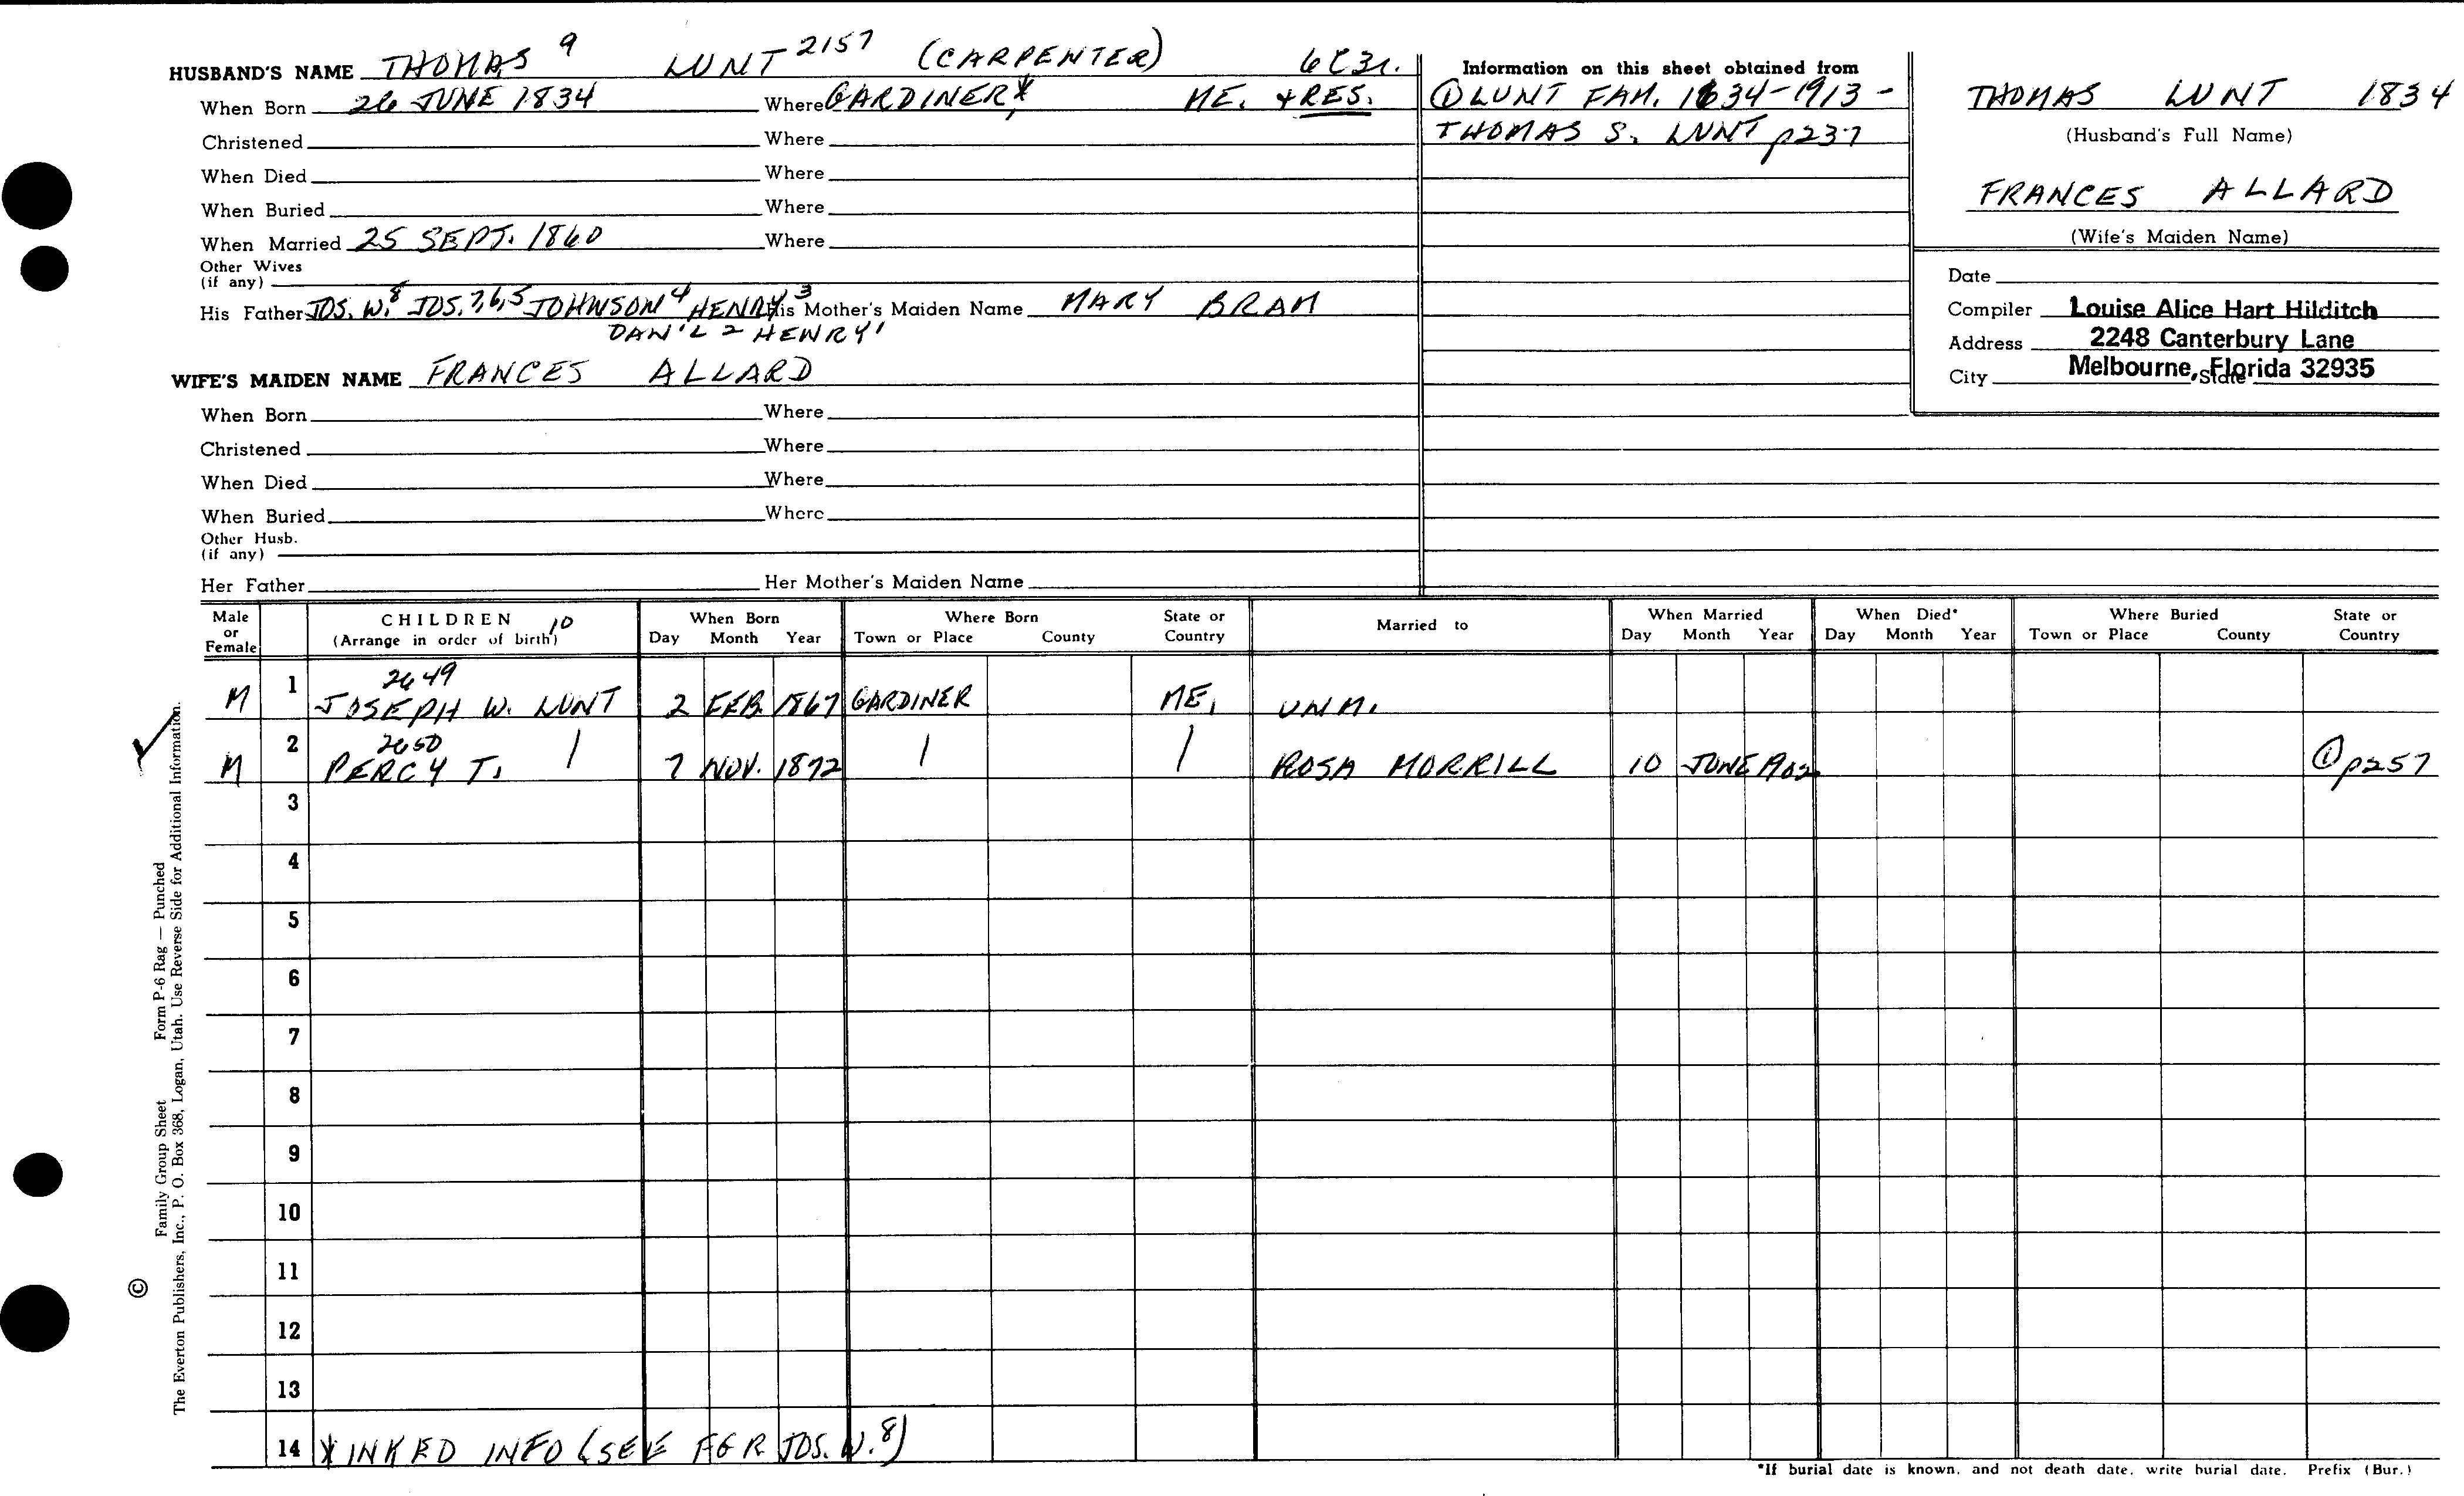 HUSBAND'S NAME THOMAS 9 LUNT 2157 (CARPENTER)
When Born 26 JUNE 1834 Where GARDINER,* ME. + RES.
Christened Where
When Died Where
When Buried Where
When Married 25 SEPT. 1860 Where
Other Wives
(if any)
His Father JOS. W.8 JOS.7,6,5 JOHNSON4 HENRY3 His Mother's Maiden Name MARY BRAN
DAN'L 2 HENRY1
WIFE'S MAIDEN NAME FRANCES ALLARD
When Born Where
Christened Where
When Died Where
When Buried Where
Other Husb.
(if any)
Her Father Her Mother's Maiden Name
Information on this sheet obtained from
① LUNT FAM. 1634-1913 -
THOMAS S. LUNT p237
THOMAS LUNT 1834
(Husband's Full Name)
FRANCES ALLARD
(Wife's Maiden Name)
Date
Compiler Louise Alice Hart Hilditch
Address 2248 Canterbury Lane
City Melbourne, Florida 32935 State
Male or Female CHILDREN 10 (Arrange in order of birth) When Born Day Month Year Where Born Town or Place County State or Country Married to When Married Day Month Year When Died* Day Month Year Where Buried Town or Place County State or Country
2649
M 1 JOSEPH W. LUNT 2 FEB. 1867 GARDINER ME. UNM.
2650
M 2 PERCY T. 7 NOV. 1872 ROSA MORRILL 10 JUNE 1902 ① p257
3
4
5
6
7
8
9
10
11
12
13
14 *INKED INFO (SEE FGR JOS. W.8)
*If burial date is known, and not death date, write burial date. Prefix (Bur.)
Family Group Sheet Form P-6 Rag — Punched
© The Everton Publishers, Inc., P. O. Box 368, Logan, Utah. Use Reverse Side for Additional Information.